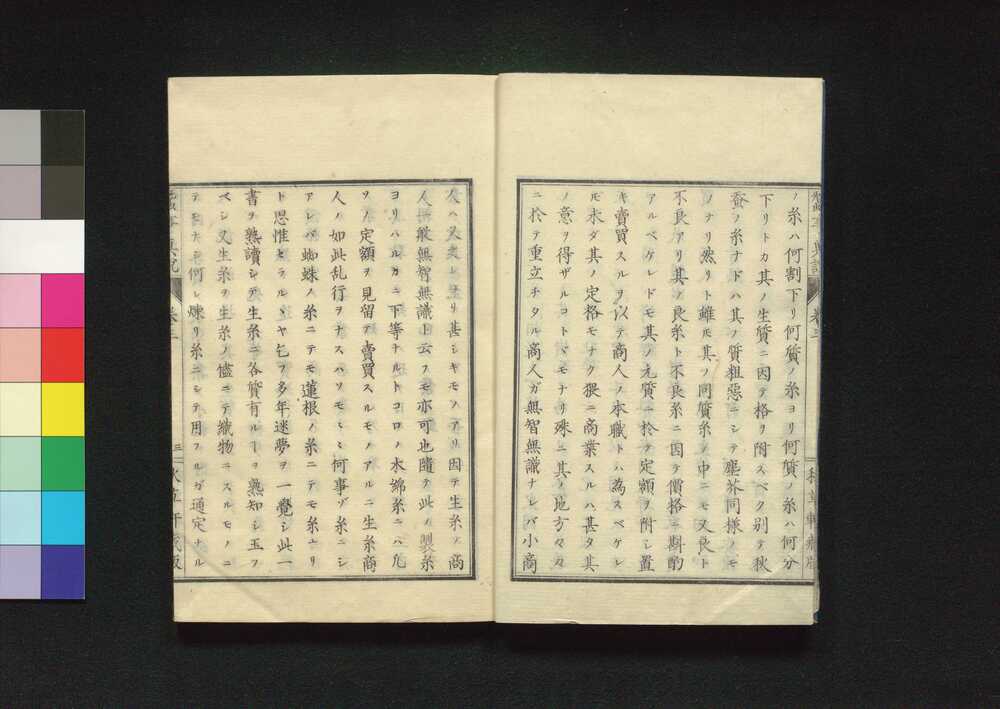 ノ糸ハ何割下リ何質ノ糸ヨリ何質ノ糸ハ何分
下リトカ其ノ生質ニ因テ格リ附スベク別テ秋
蚕ノ糸ナドハ其ノ質粗惡ニシテ塵芥同様ノモ
ノナリ然リト雖モ其ノ同質糸ノ中ニモ又良ト
不良アリ其ノ良糸ト不良糸ニ因テ價格ニ斟酌
アルベケレドモ其ノ元質ニ於テ定額ヲ附シ置
キ賣買スルヲ以テ商人ノ本職トハ為スベケレ
𪜈未ダ其ノ定格モナク猥ニ商業スルハ甚タ其
ノ意ヲ得ザルコトマモナリ殊ニ其ノ地方々々
ニ於テ重立チタル商人ガ無智無識ナレバ小商
卷三
人ハ又夫レヨリ甚シキモノアリ因テ生糸ノ商
人無敏無智無識ト云フモ亦可也隨テ此ノ製糸
ヨリハルカニ下等ナルトコロノ木綿糸ニハ凡
ソノ定額ヲ見留テ賣買スルモノアルニ生糸商
人ノ如此乱行ヲナスハソモミミ何事ゾ糸ニシ
アレバ蜘蛛ノ糸ニテモ蓮根ノ糸ニテモ糸ユリ
ト思惟セラルヽヤ乞フ多年迷夢ヲ一覺シ此一
書ヲ熟讀シテ生糸ニ各質有ルヿヲ熟知シ玉フ
ベシ又生糸ヲ生糸ノ儘ニテ織物ニスルモノニ
何レ煉リ糸ニシテ用フルガ通定ナル
卷三
三